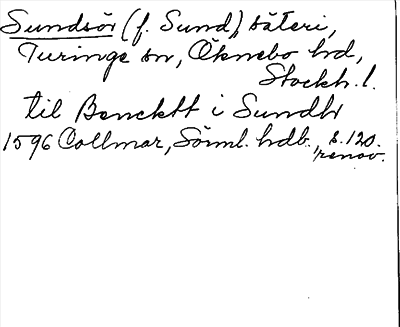 Sundsör (f. Sund), säteri,
Turinge sn, Öknebo hd,
Stockh. l.
til Bencktt i Sundhr
1596 Collmar, Sörml. hdb., s. 120.
renov.